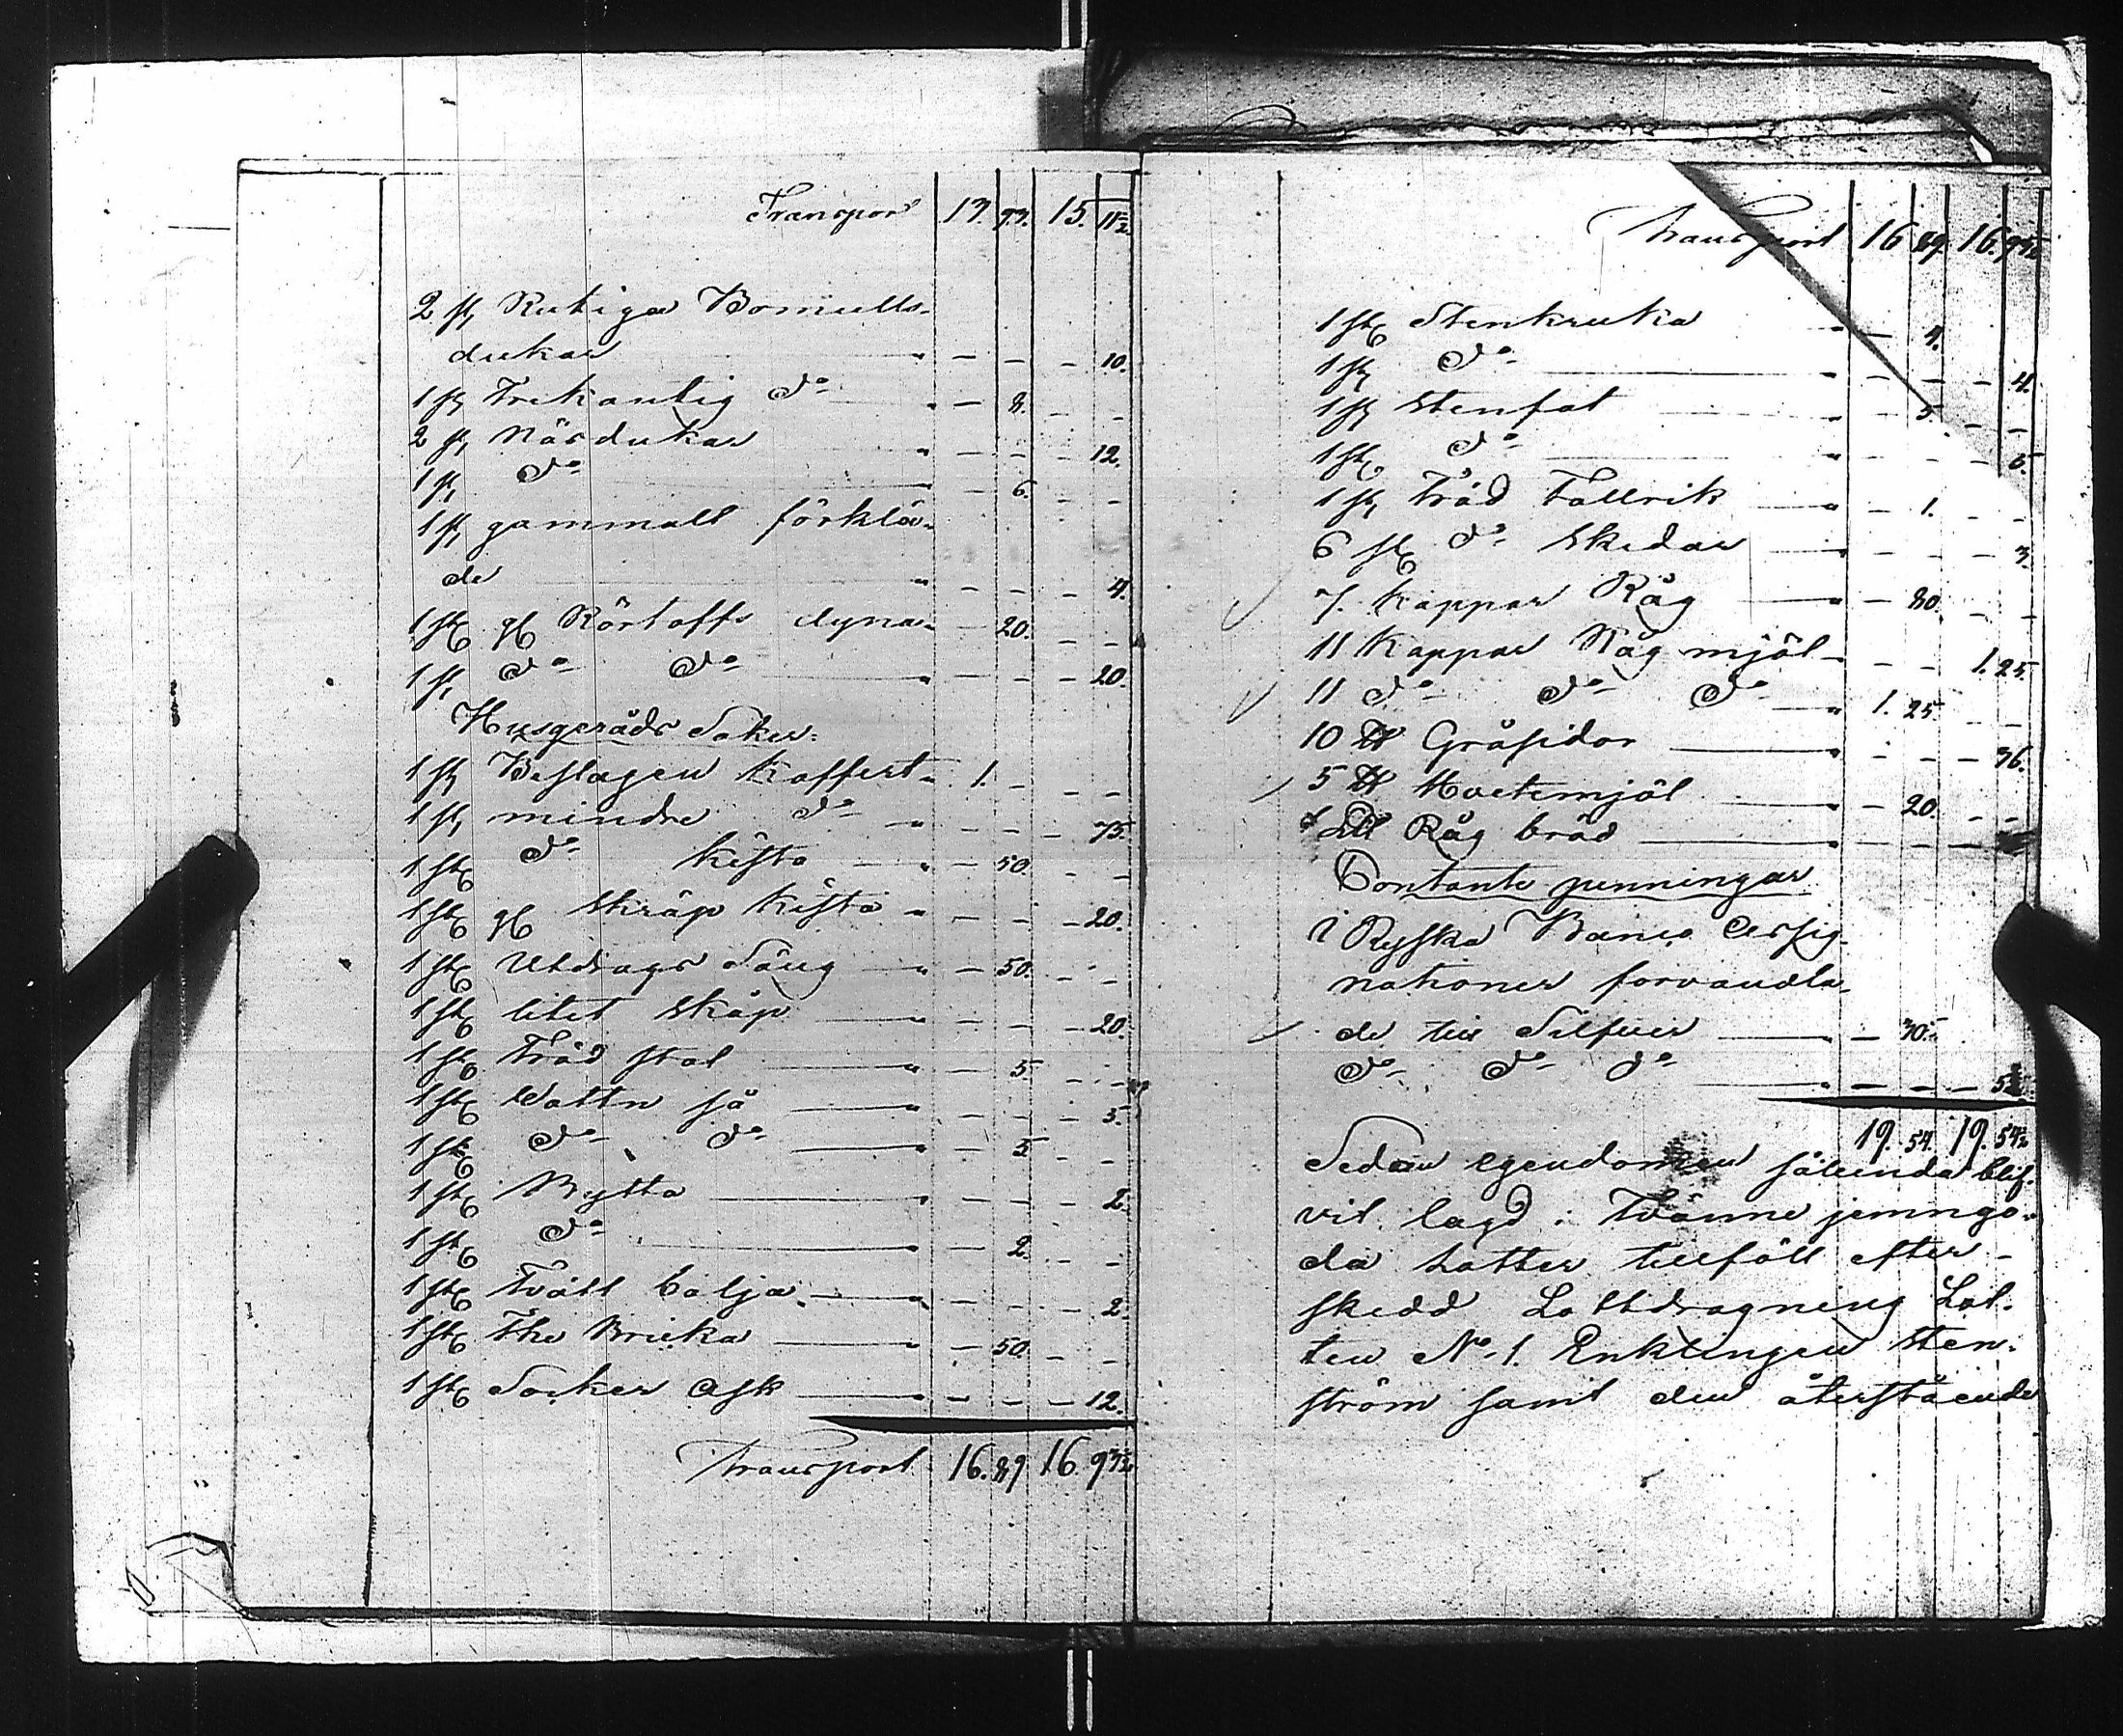 Transport 13. 93. 15. 11½
2 st, Rutiga Bomulls-
dukar " — — — 10.
1 st Trekantig do " — 8. — —
2 st, Näsdukar " — — — 12.
1 st, do — 6. — —
1 st, gammalt förklä-
de " — — — 4.
1 st gl Rörtoffs dyna — 20. — —
1 st, do do " — — — 20.
Husgeråds Saker.
1 st Beslagen Koffert 1. — — —
1 st, mindre do " — — — 75.
1 st do Kista " — 50. — —
1 st gl Skräp Kista " — — — 20.
1 st Utdrags Säng " — 50. — —
1 st litet Skåp " — — — 20.
1 st Träd stol " — 5. — —
1 st Vattn så " — — — 5.
1 st do do " — 5 — —
1 st Bytta — — — 2.
1 st do — 2. — —
1 st Tvätt balja " — — — 2.
1 st The Bricka — 50. — —
1 st Socker Ask " — — — 12.
Transport 16. 89 16. 93½
Transport 16 89. 16. 93½
1 st Stenkruka " — 4.
1 st do " — — — 4.
1 st Stenfat " — 5. — —
1 st do " — — — 5.
1 st, Träd Tallrik " — 1. — —
6 st do Skedar " — — — 3.
7. Kappar Råg " — 80. — —
11 Kappar Råg mjöl — — 1. 25
11 do do do " 1. 25. — —
10 ℔ Gråsidor " — — — 36.
5 ℔ Hvetemjöl " — 20. — —
L℔ Råg bröd " — — —
Contante penningar
i Ryska Banco Assig-
nationer forvandla-
de till Silfver " — 30.
do do do " — — —
19. 54. 19. 54½
Sedan egendomen sålunda blif-
vit lagd i Tvänne jemngo-
da Lotter tillföll efter
skedd Lottdragning Lot-
ten No 1. Enklingen Sten-
ström samt den återstående